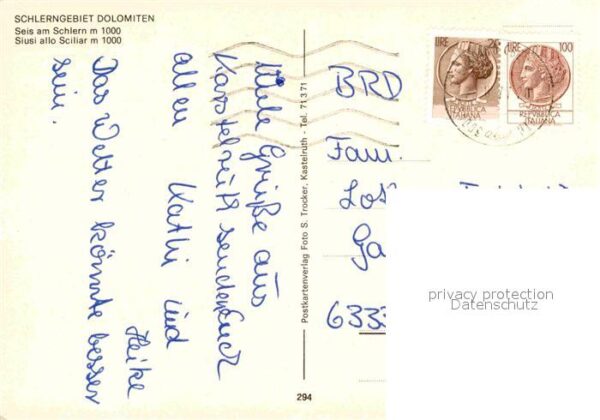 SCHLERNGEBIET DOLOMITEN
Seis am Schlern m 1000
Siusi allo Sciliar m 1000
Viele Grüße aus
Kastelruth senden Euch
allen Kathi und
Heike
Das Wetter könnte besser
sein.
Postkartenverlag Foto S. Trocker, Kastelruth - Tel. 71371
294
LIRE 25
REPVBBLICA
ITALIANA
LIRE 100
REPVBBLICA
ITALIANA
BRD
Fam.
6333
privacy protection
Datenschutz